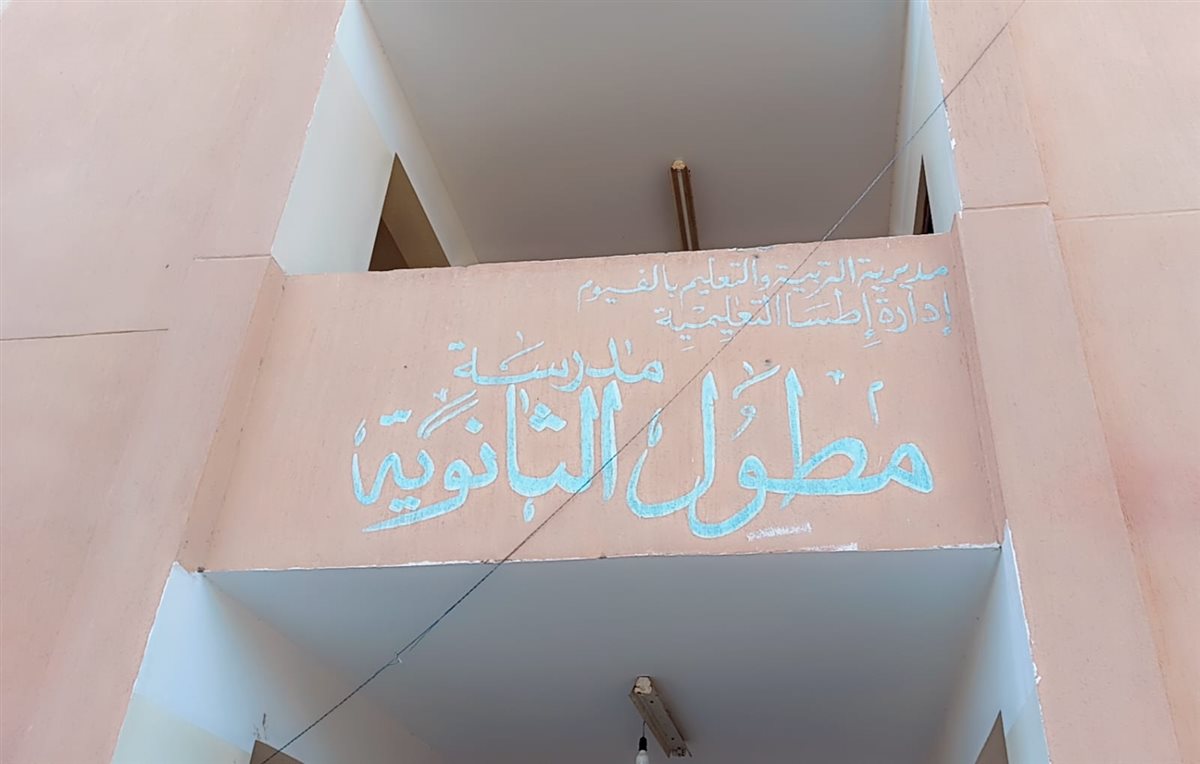 مديرية التربية والتعليم بالفيوم
إدارة إطسا التعليمية
مدرسة
مطول الثانوية